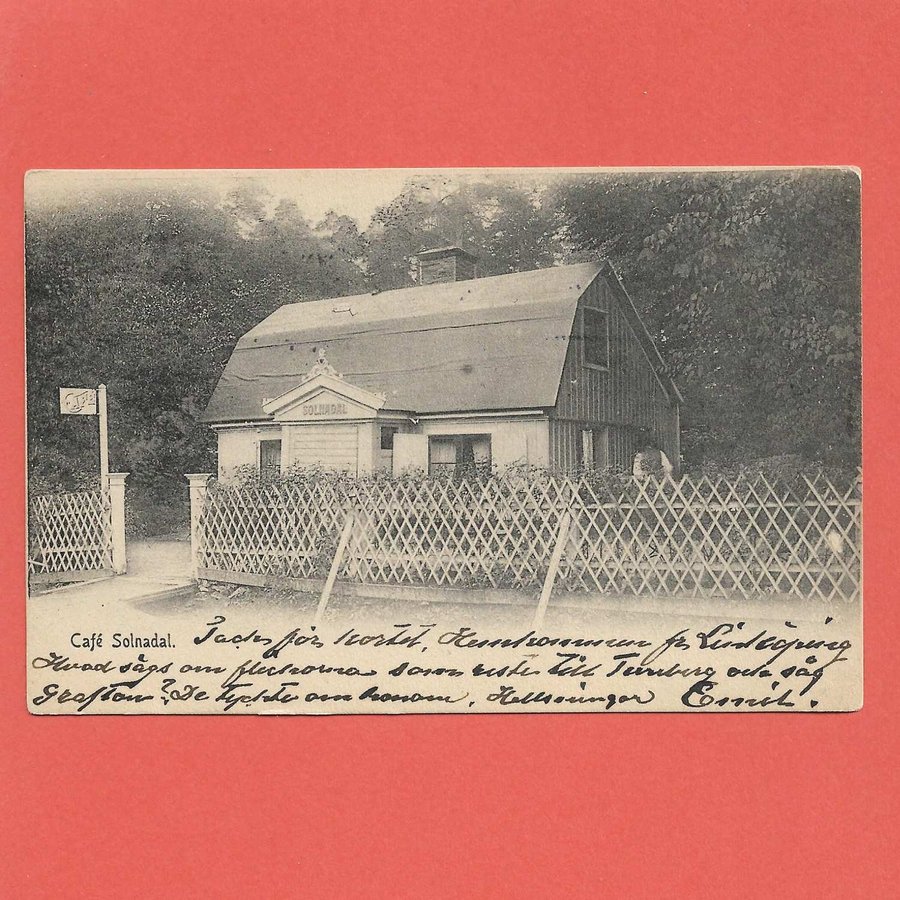 CAFÉ
SOLNADAL
Café Solnadal.
Tack för kortet. Hemkommen fr Linköping
Hvad sägs om flickorna som reste till Tureberg och såg
Grafton? De tyckte om honom. Helsningar Emil.